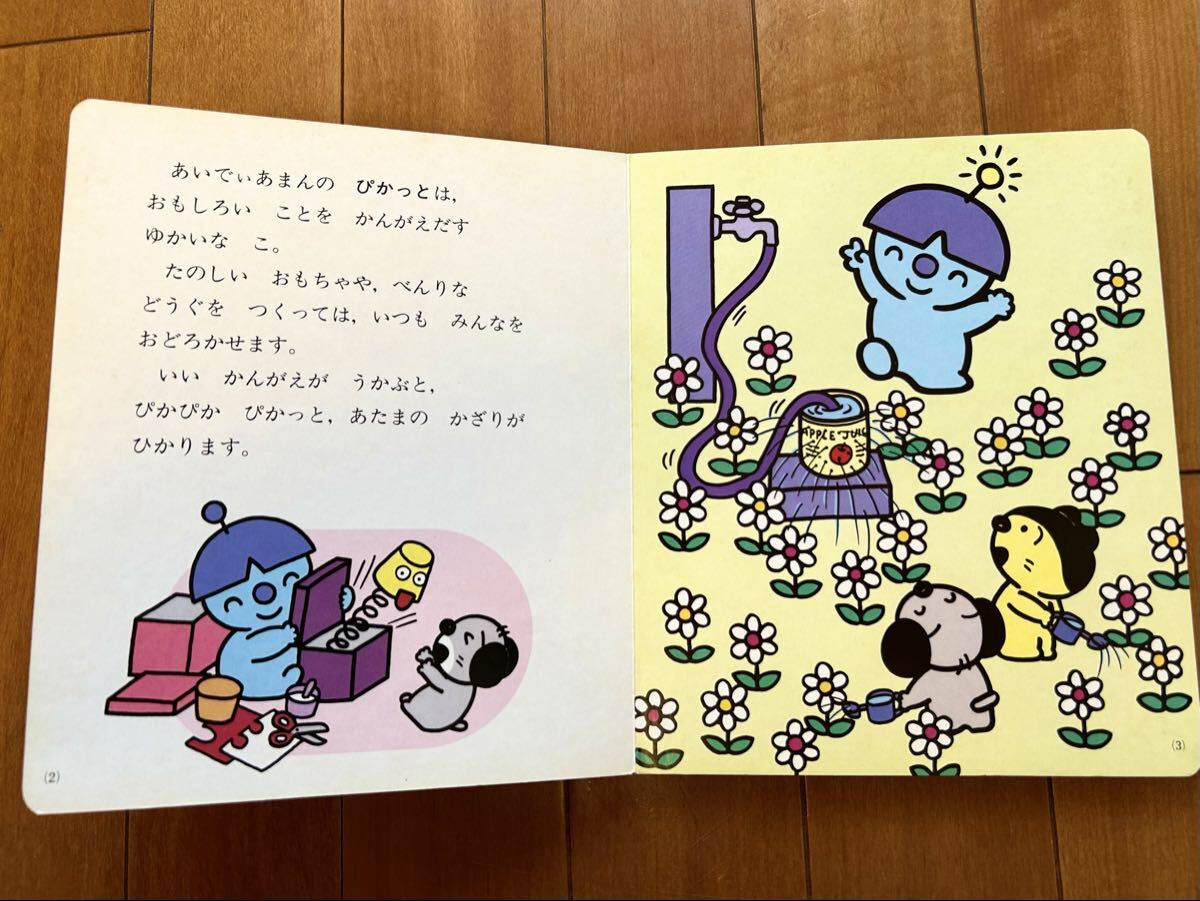 あいでぃあまんの　ぴかっとは，
おもしろい　ことを　かんがえだす
ゆかいな　こ。
たのしい　おもちゃや，べんりな
どうぐを　つくっては，いつも　みんなを
おどろかせます。
いい　かんがえが　うかぶと，
ぴかぴか　ぴかっと，あたまの　かざりが
ひかります。
(2)
APPLE JUICE
(3)